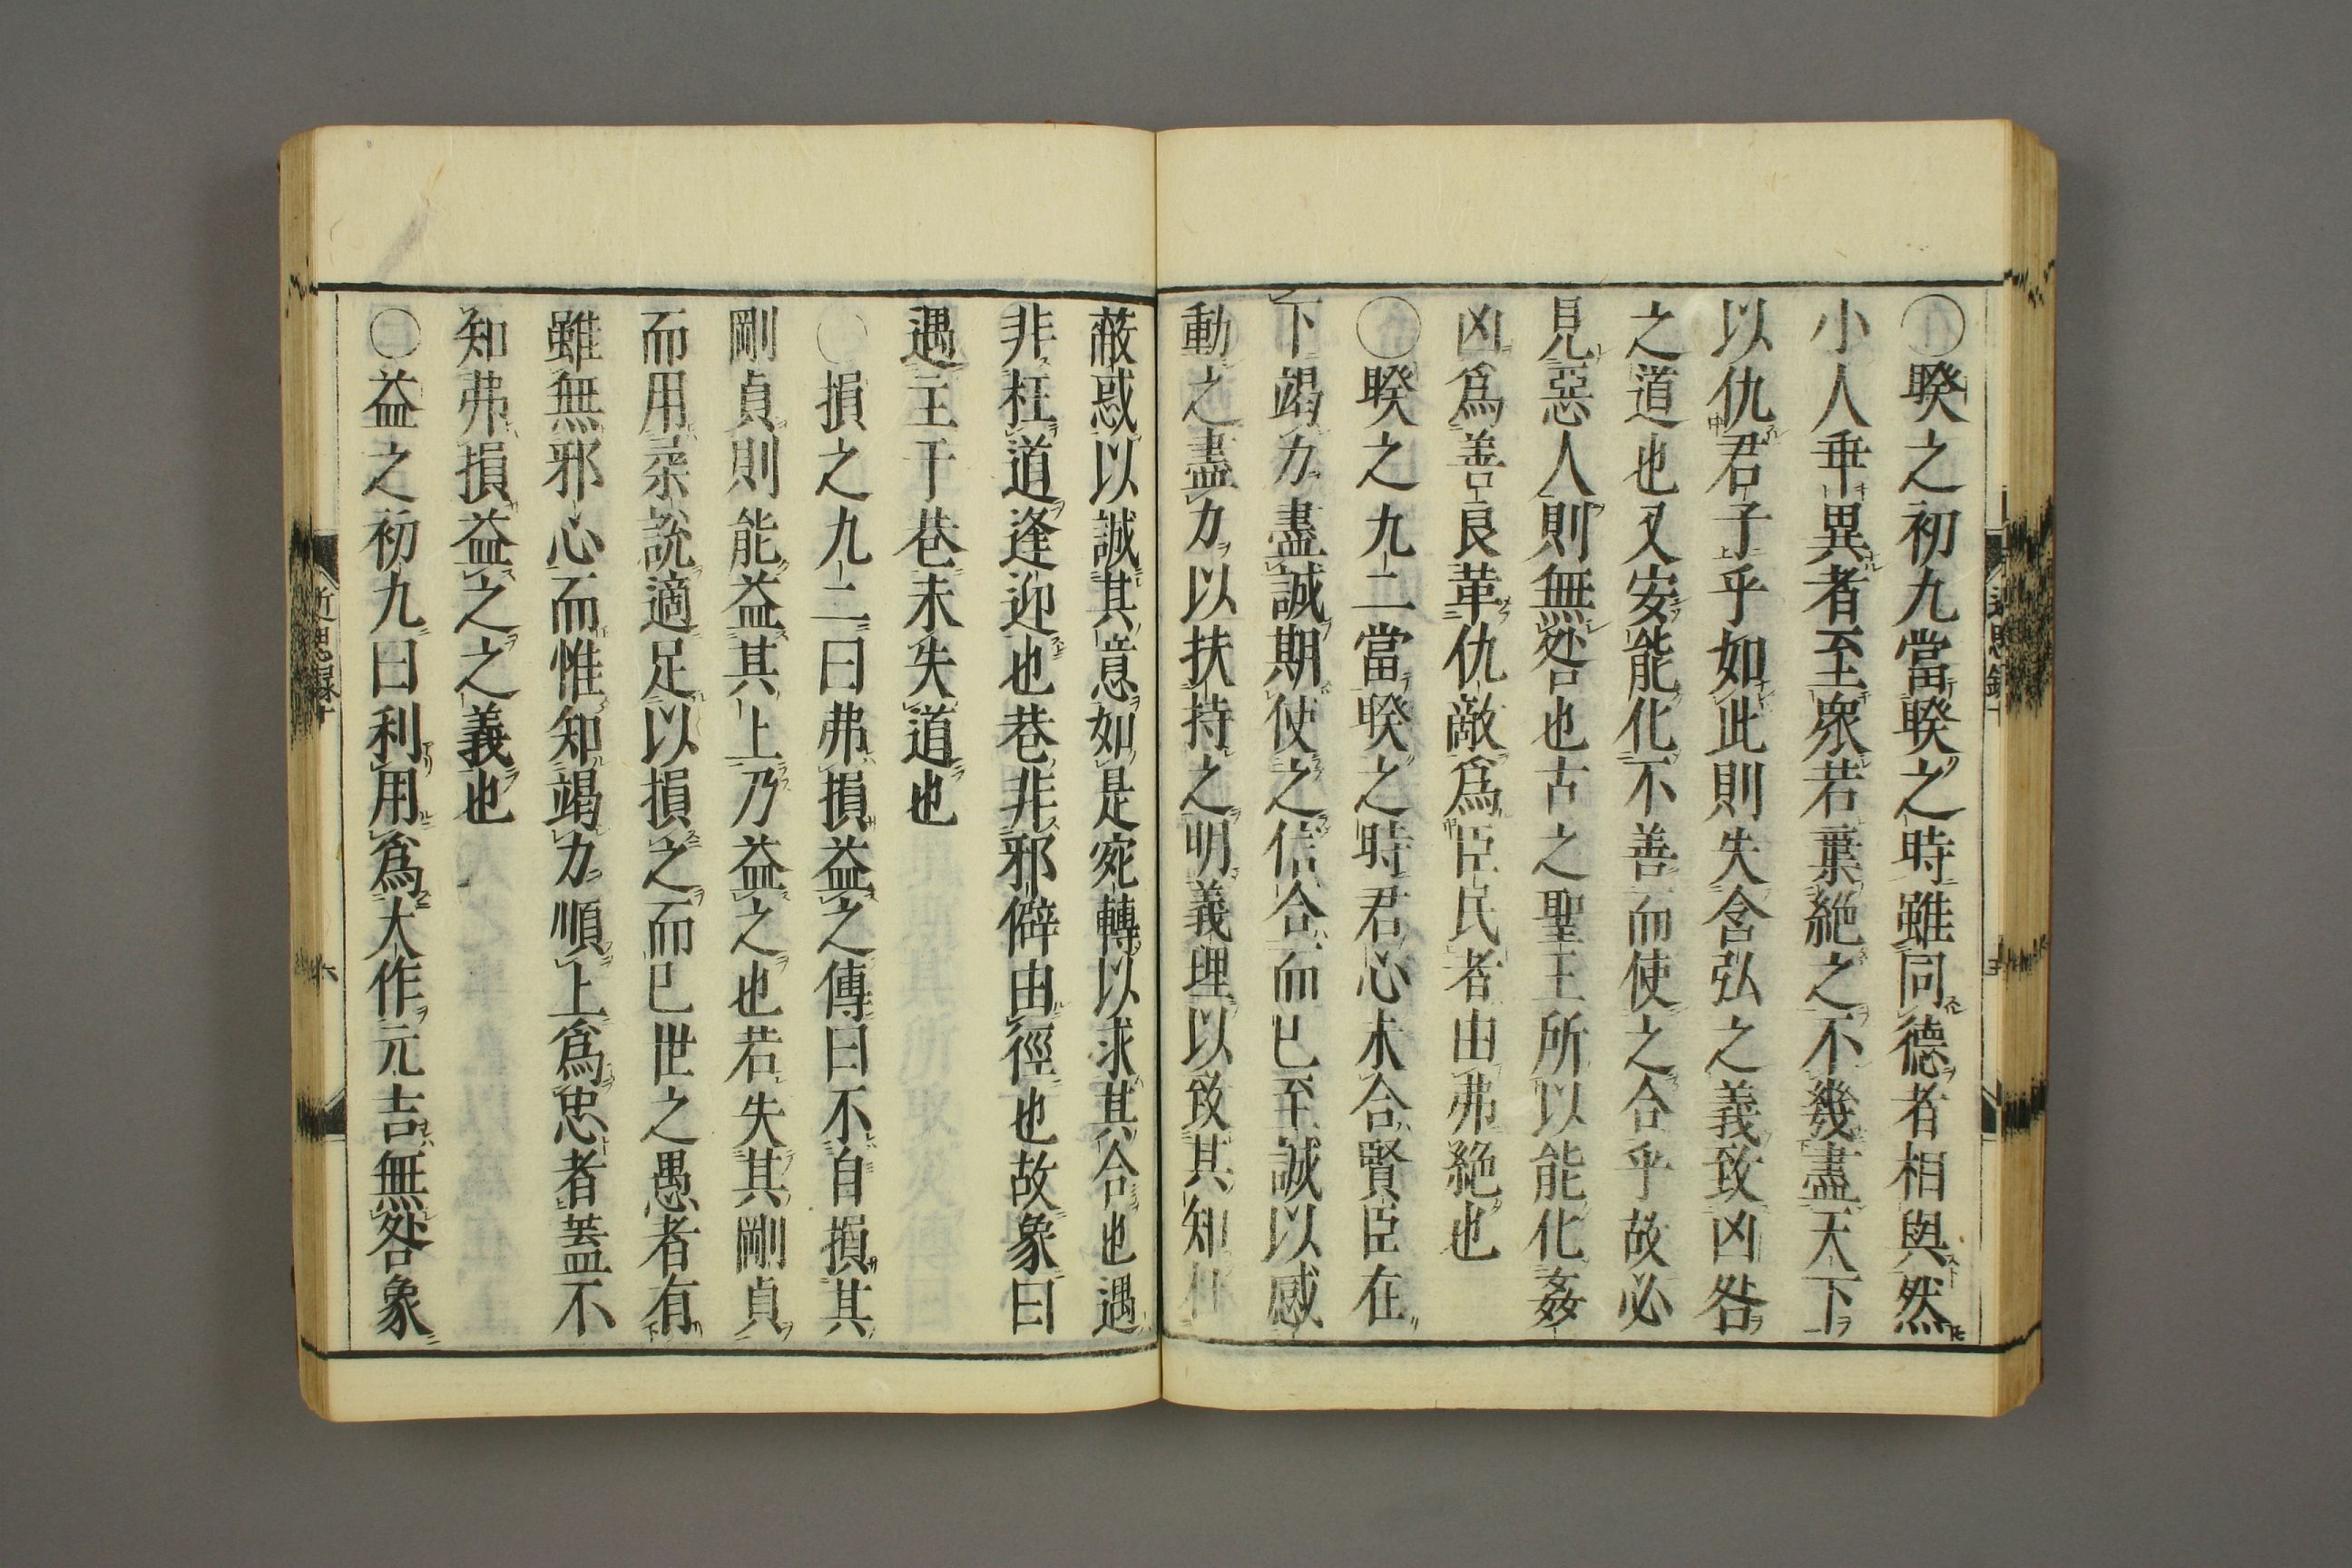 〇睽之初九當睽之時雖同德者相與然
小人乖異者至眾若棄絕之不幾盡天下
以仇君子乎如此則失含弘之義致凶咎
之道也又安能化不善而使之合乎故必
見惡人則無咎也古之聖王所以能化姦
凶爲善良革仇敵爲臣民者由弗絕也
〇睽之九二當睽之時君心未合賢臣在
下竭力盡誠期使之信合而已至誠以感
動之盡力以扶持之明義理以致其知杜
蔽惑以誠其意如是宛轉以求其合也遇
非枉道逢迎也巷非邪僻由徑也故象曰
遇主于巷未失道也
〇損之九二曰弗損益之傳曰不自損其
剛貞則能益其上乃益之也若失其剛貞
而用柔說適足以損之而已世之愚者有
雖無邪心而惟知竭力順上爲忠者蓋不
知弗損益之之義也
〇益之初九曰利用爲大作元吉無咎象
近思錄十
六